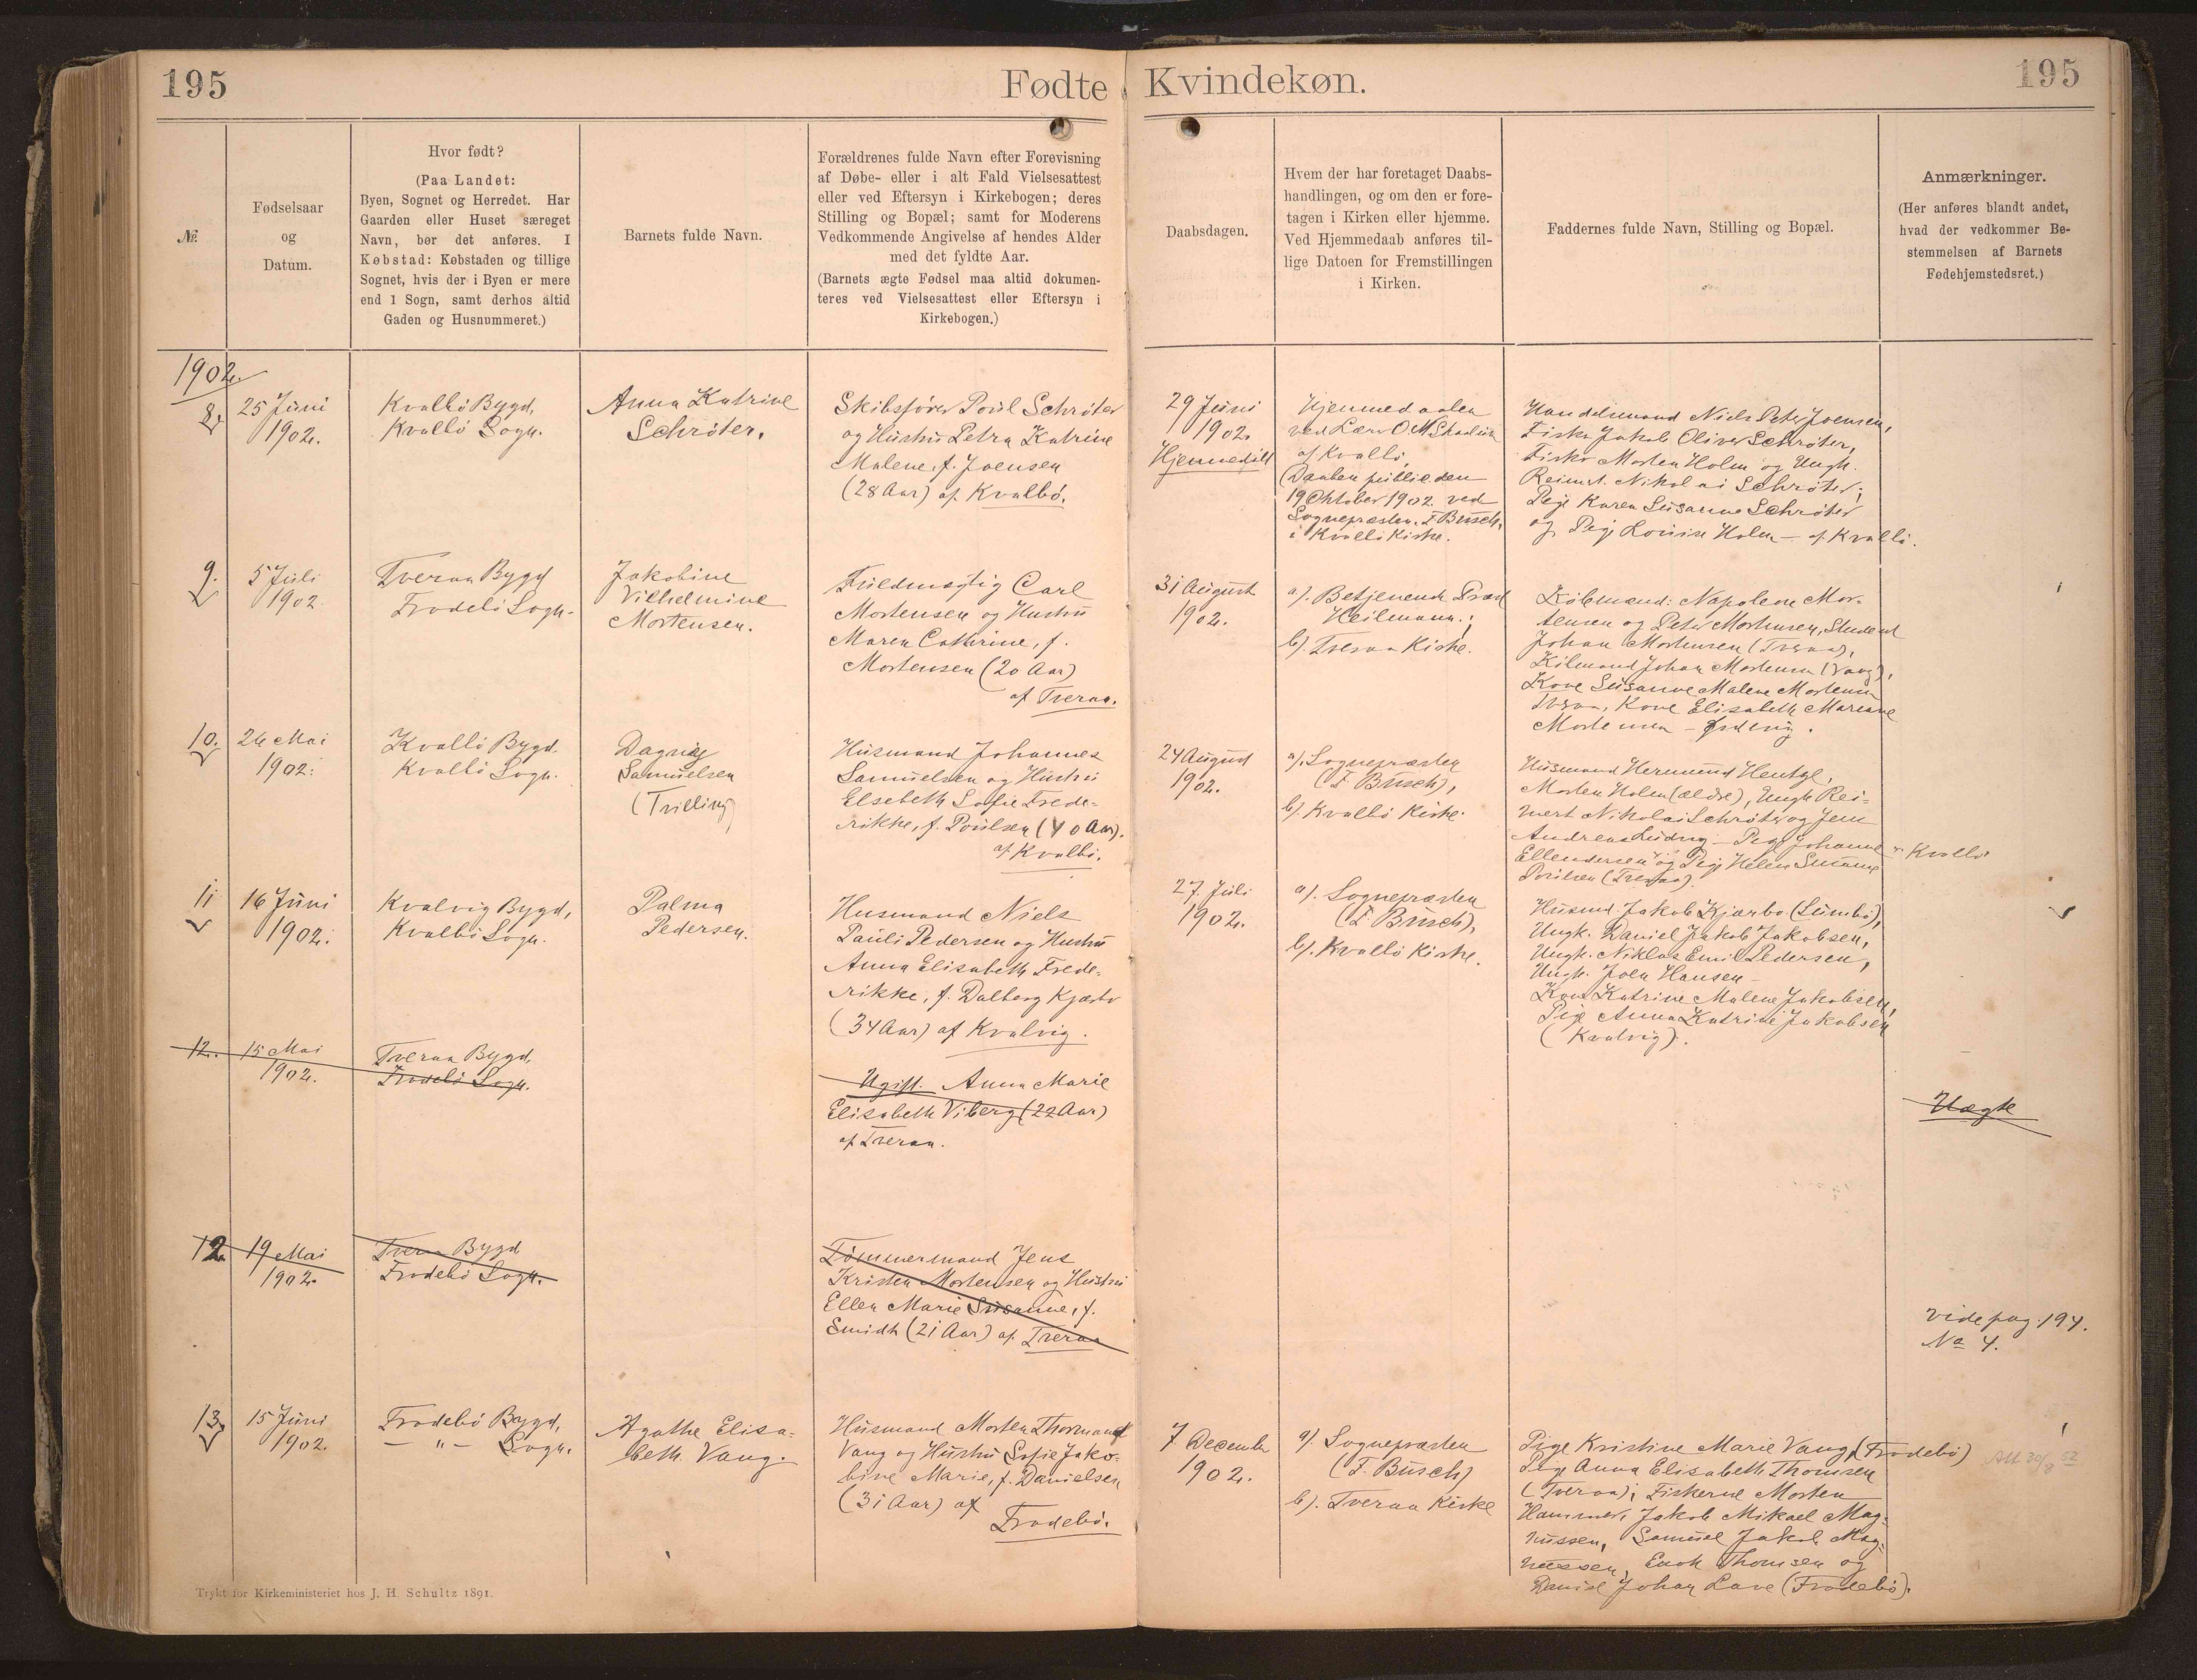 195
Fødte
Kvindekøn.
195
№
Fødselsaar
og
Datum.
Hvor født?
(Paa Landet:
Byen, Sognet og Herredet. Har
Gaarden eller Huset særeget
Navn, bør det anføres. I
Købstad: Købstaden og tillige
Sognet, hvis der i Byen er mere
end 1 Sogn, samt derhos altid
Gaden og Husnummeret.)
Barnets fulde Navn.
Forældrenes fulde Navn efter Forevisning
af Døbe- eller i alt Fald Vielsesattest
eller ved Eftersyn i Kirkebogen; deres
Stilling og Bopæl; samt for Moderens
Vedkommende Angivelse af hendes Alder
med det fyldte Aar.
(Barnets ægte Fødsel maa altid dokumen-
teres ved Vielsesattest eller Eftersyn i
Kirkebogen.)
Daabsdagen.
Hvem der har foretaget Daabs-
handlingen, og om den er fore-
tagen i Kirken eller hjemme.
Ved Hjemmedaab anføres til-
lige Datoen for Fremstillingen
i Kirken.
Faddernes fulde Navn, Stilling og Bopæl.
Anmærkninger.
(Her anføres blandt andet,
hvad der vedkommer Be-
stemmelsen af Barnets
Fødehjemstedsret.)
1902.
8.
25 Juni
1902.
Kvalbö Bygd,
Kvalbö Sogn.
Anna Katrine
Schröter.
Skibsförer Poul Schröter
og Hustru Petra Katrine
Malene, f. Joensen
(28 Aar) af Kvalbö.
29 Juni
1902
Hjemmedöbt
Hjemmedaaben
ved Lærer O M
af Kvalbö,
Daaben public. den
19 Oktober 1902 ved
Sognepræsten F. Busch,
i Kvalbö Kirke.
Handelsmand Niels Peter Joensen,
Fisker Jakob Oliver Schröter,
Fisker Morten Holm og Ungk.
Reinert Nikolai Schröter;
Pige Karen Susanne Schröter
og Pige Louise Holm – af Kvalbö.
9.
5 Juli
1902
Tveraa Bygd
Frodebö Sogn.
Jakobine
Vilhelmine
Mortensen.
Fuldmægtig Carl
Mortensen og Hustru
Maren Cathrine, f.
Mortensen (20 Aar)
af Tveraa.
31 August
1902.
a). Betjenende Præst
Heilmann.;
b). Tveraa Kirke.
Købmænd: Napoleon Mor-
tensen og Peter Mortensen, Student
Johan Mortensen (Tveraa),
Købmand Johan Mortensen (Vaag),
Kone Susanne Malene Mortensen
Tveraa, Kone Elisabeth Mariane
Mortensen –
10.
26 Mai
1902.
Kvalbö Bygd.
Kvalbö Sogn.
Dagny
Samuelsen
(Trilling)
Husmand Johannes
Samuelsen og Hustru
Elsebeth Sofie Frede-
rikke, f. Poulsen (40 Aar).
af Kvalbö.
24 August
1902.
a). Sognepræsten
(F. Busch),
b). Kvalbö Kirke.
Husmand Hermund Hentze,
Morten Holm (ældre), Ungk. Rei-
nert Nikolai Schröter og Jens
Andreas Ludvig – Pige Johanne
Ellendersen og Pige Helene Susanne
Poulsen (Tveraa).
Kvalbö
11
16 Juni
1902.
Kvalvig Bygd,
Kvalbö Sogn.
Palma
Pedersen.
Husmand Niels
Pauli Pedersen og Hustru
Anna Elisabeth Frede-
rikke, f. Dalberg Kjærbo
(34 Aar) af Kvalvig.
27. Juli
1902.
a). Sognepræsten
(F. Busch),
b). Kvalbö Kirke.
Husmd. Jakob Kjærbo (Sumbö),
Ungk. Daniel Jakob Jakobsen,
Ungk. Niklas Emil Pedersen,
Ungk. Joen Hansen –
Kone Katrine Malene Jakobsen,
Pige Anna Katrine Jakobsen
(Kvalvig).
12.
15 Mai
1902.
Tveraa Bygd,
Frodebö Sogn.
Ugift Anna Marie
Elisabeth Viberg (22 Aar)
af Tveraa.
Uægte
12.
19 Mai
1902.
Tveraa Bygd
Frodebö Sogn.
Tömmermand Jens
Kristen Mortensen og Hustru
Ellen Marie Susanne, f.
Smidt (21 Aar) af Tveraa
vide pag. 194.
No 4.
13.
15 Juni
1902.
Frodebö Bygd,
— " — Sogn.
Agathe Elisa-
beth Vang.
Husmand Morten Thormand
Vang og Hustru Sofie Jako-
bine Marie, f. Danielsen
(31 Aar) af
Frodebö.
7 December
1902.
a). Sognepræsten
(F. Busch)
b). Tveraa Kirke
Pige Kristine Marie Vang (Frodebö)
Pige Anna Elisabeth Thomsen
(Tveraa); Fiskerne Morten
Hammer, Jakob Mikael Mag-
nussen, Samuel Jakob Mag-
nussen, Enok Thomsen og
Daniel Johan Lave (Frodebö).
Att 30/8 52
Trykt for Kirkeministeriet hos J. H. Schultz 1891.